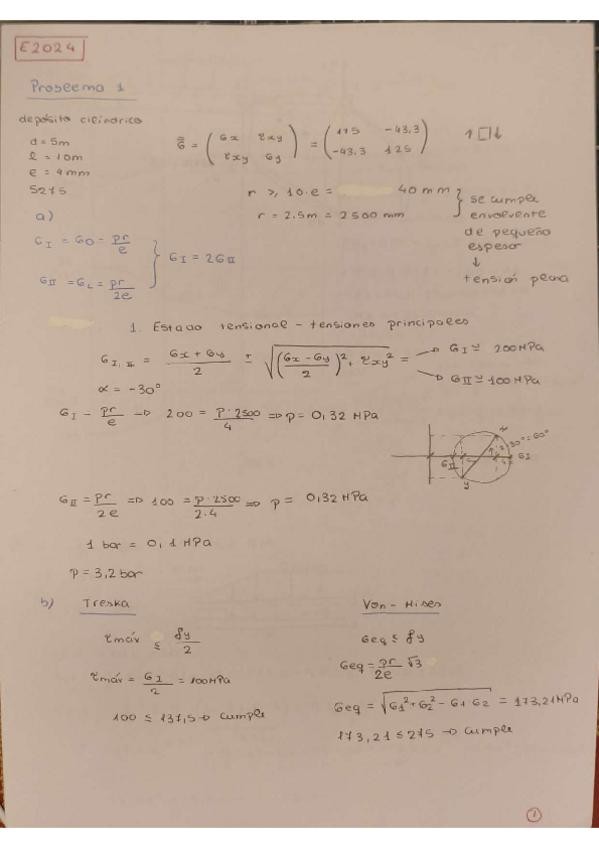 E2024
Problema 1
depósito cilíndrico
d = 5m
l = 10m
e = 4mm
S275
σ̿ = ( σx τxy / τxy σy ) = ( 175 -43,3 / -43,3 125 )
r ≥ 10·e = 40 mm
r = 2,5m = 2500 mm
se cumple
envolvente
de pequeño
espesor
↓
tensión plana
a)
σI = σθ = pr/e
σII = σL = pr/2e
σI = 2σII
1. Estado tensional - tensiones principales
σI,II = (σx + σy)/2 ± √(((σx - σy)/2)², τxy²) =
→ σI ≃ 200MPa
→ σII ≃ 100MPa
α = -30°
σI = pr/e => 200 = p·2500/4 => p = 0,32 MPa
x
30° = 60°
σII
σI
y
σII = pr/2e => 100 = p·2500/2·4 => p = 0,32 MPa
1 bar = 0,1 MPa
p = 3,2 bar
b) Treska
τmáx ≤ fy/2
τmáx = σI/2 = 100MPa
100 ≤ 137,5 → cumple
Von-Mises
σeq ≤ fy
σeq = pr/2e √3
σeq = √(σ1² + σ2² - σ1 σ2) = 173,21MPa
173,21 ≤ 275 → cumple
1